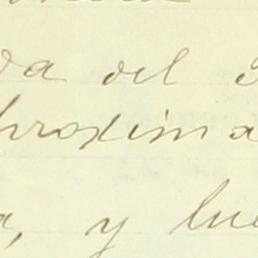 da del
proxima
a, y lue